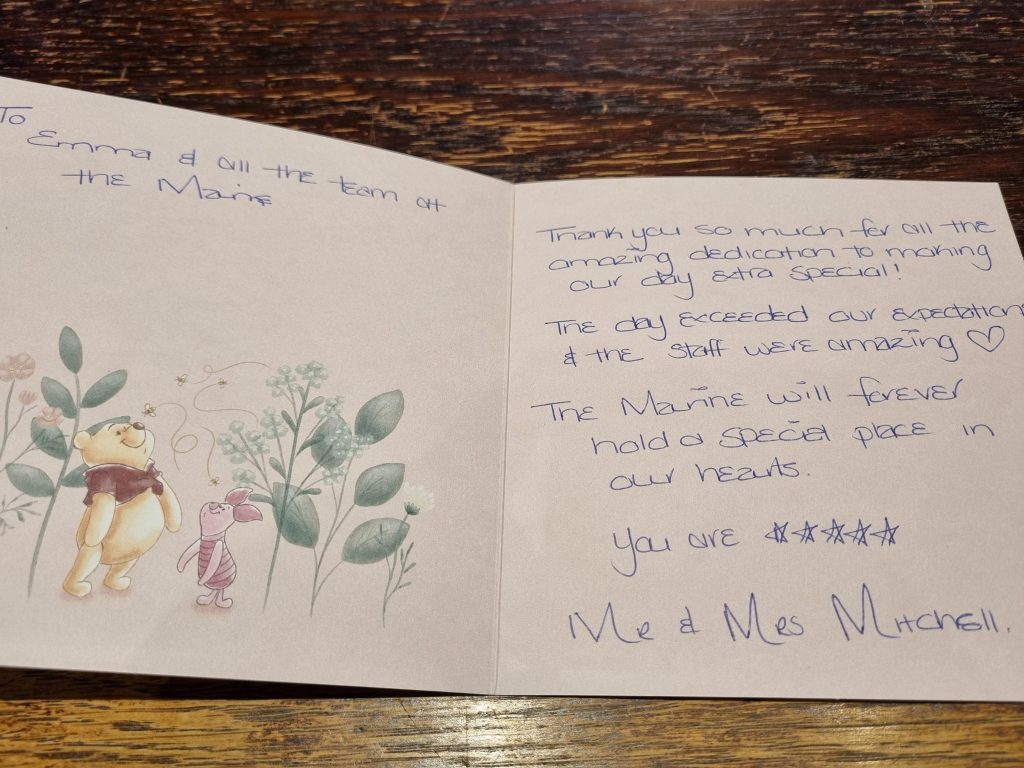 To
Emma & all the team at
the Marine
Thank you so much for all the
amazing dedication to making
our day extra special!
The day exceeded our expectations
& the staff were amazing ♡
The Marine will forever
hold a special place in
our hearts.
You are ☆☆☆☆☆
Mr & Mrs Mitchell.